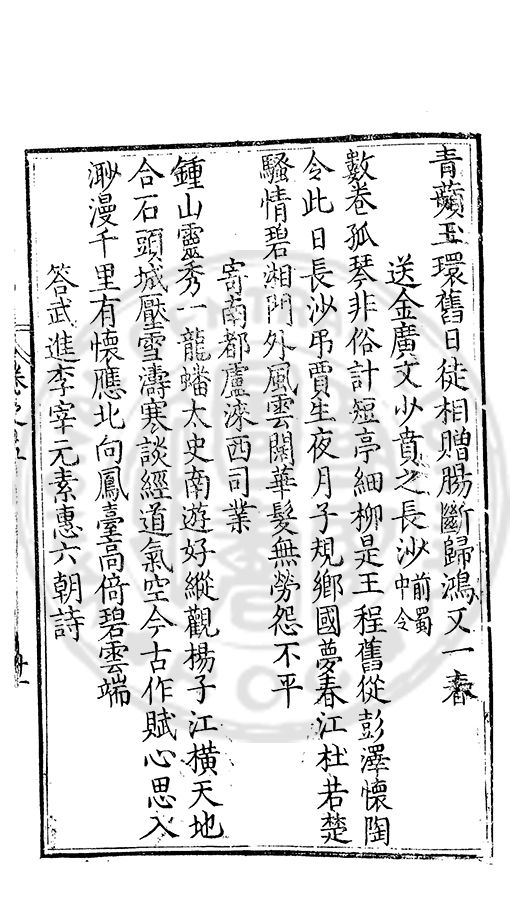 青蘋玉環舊日徒相贈腸斷歸鴻又一春
送金廣文少賁之長沙前蜀中令
數卷孤琴非俗計短亭細柳是王程舊從彭澤懷陶
令此日長沙弔賈生夜月子規鄉國夢春江杜若楚
騷情碧湘門外風雲闊華髮無勞怨不平
寄南都盧淶西司業
鍾山靈秀一龍蟠太史南遊好縱觀楊子江橫天地
合石頭城壓雪濤寒談經道氣空今古作賦心思入
渺漫千里有懷應北向鳳臺高倚碧雲端
答武進李宰元素惠六朝詩
卷之五